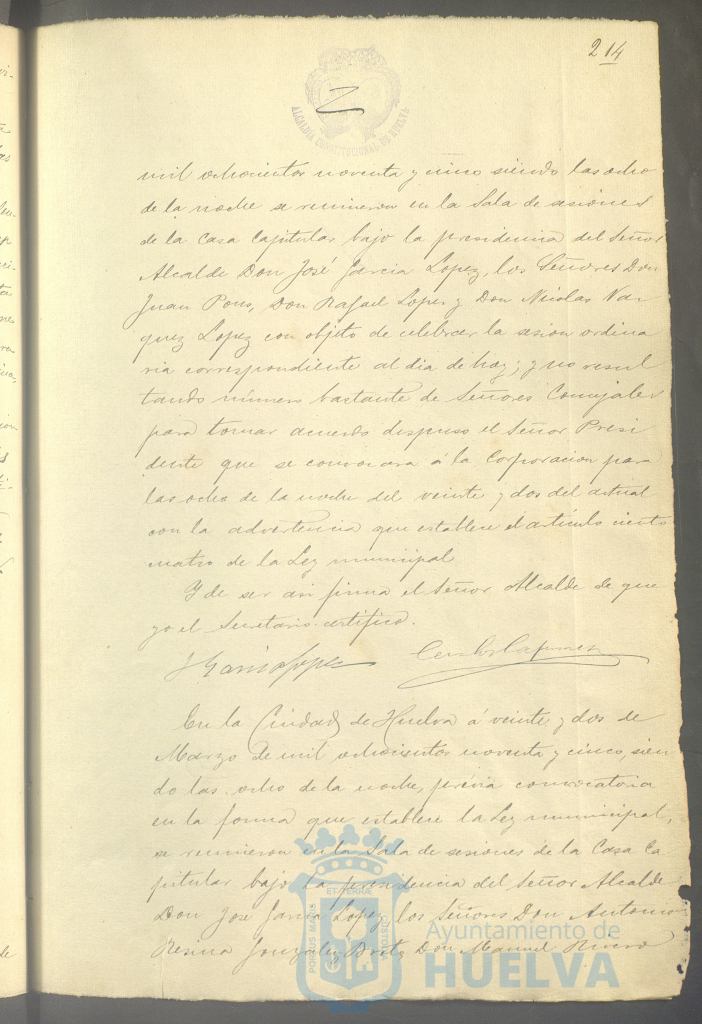 214
ALCALDIA CONSTITUCIONAL DE HUELVA
mil ochocientos noventa y cinco siendo las ocho
de la noche se reunieron en la Sala de sesiones
de la Casa Capitular bajo la presidencia del Señor
Alcalde Don José Garcia Lopez, los Señores Don
Juan Pons, Don Rafael Lopez y Don Nicolas Vaz
quez Lopez con objeto de celebrar la sesion ordina
ria correspondiente al dia de hoy; y no resul
tando número bastante de Señores Concejales
para tomar acuerdo dispuso el Señor Presi
dente que se convocara á la Corporacion para
las ocho de la noche del veinte y dos del actual
con la advertencia que establece el artículo ciento
cuatro de la Ley municipal
Y de ser asi firma el Señor Alcalde de que
yo el Secretario certifico.
J Garcia Lopez
En la Ciudad de Huelva á veinte y dos de
Marzo de mil ochocientos noventa y cinco, sien
do las ocho de la noche, prévia convocatoria
en la forma que establece la Ley municipal,
se reunieron en la Sala de sesiones de la Casa Ca
pitular bajo la presidencia del Señor Alcalde
Don José Garcia Lopez, los Señores Don Antonio
Resina Gonzalez Don Manuel Rivero
PORTUS MARIS ET TERRAE CUSTODIA
Ayuntamiento de
HUELVA